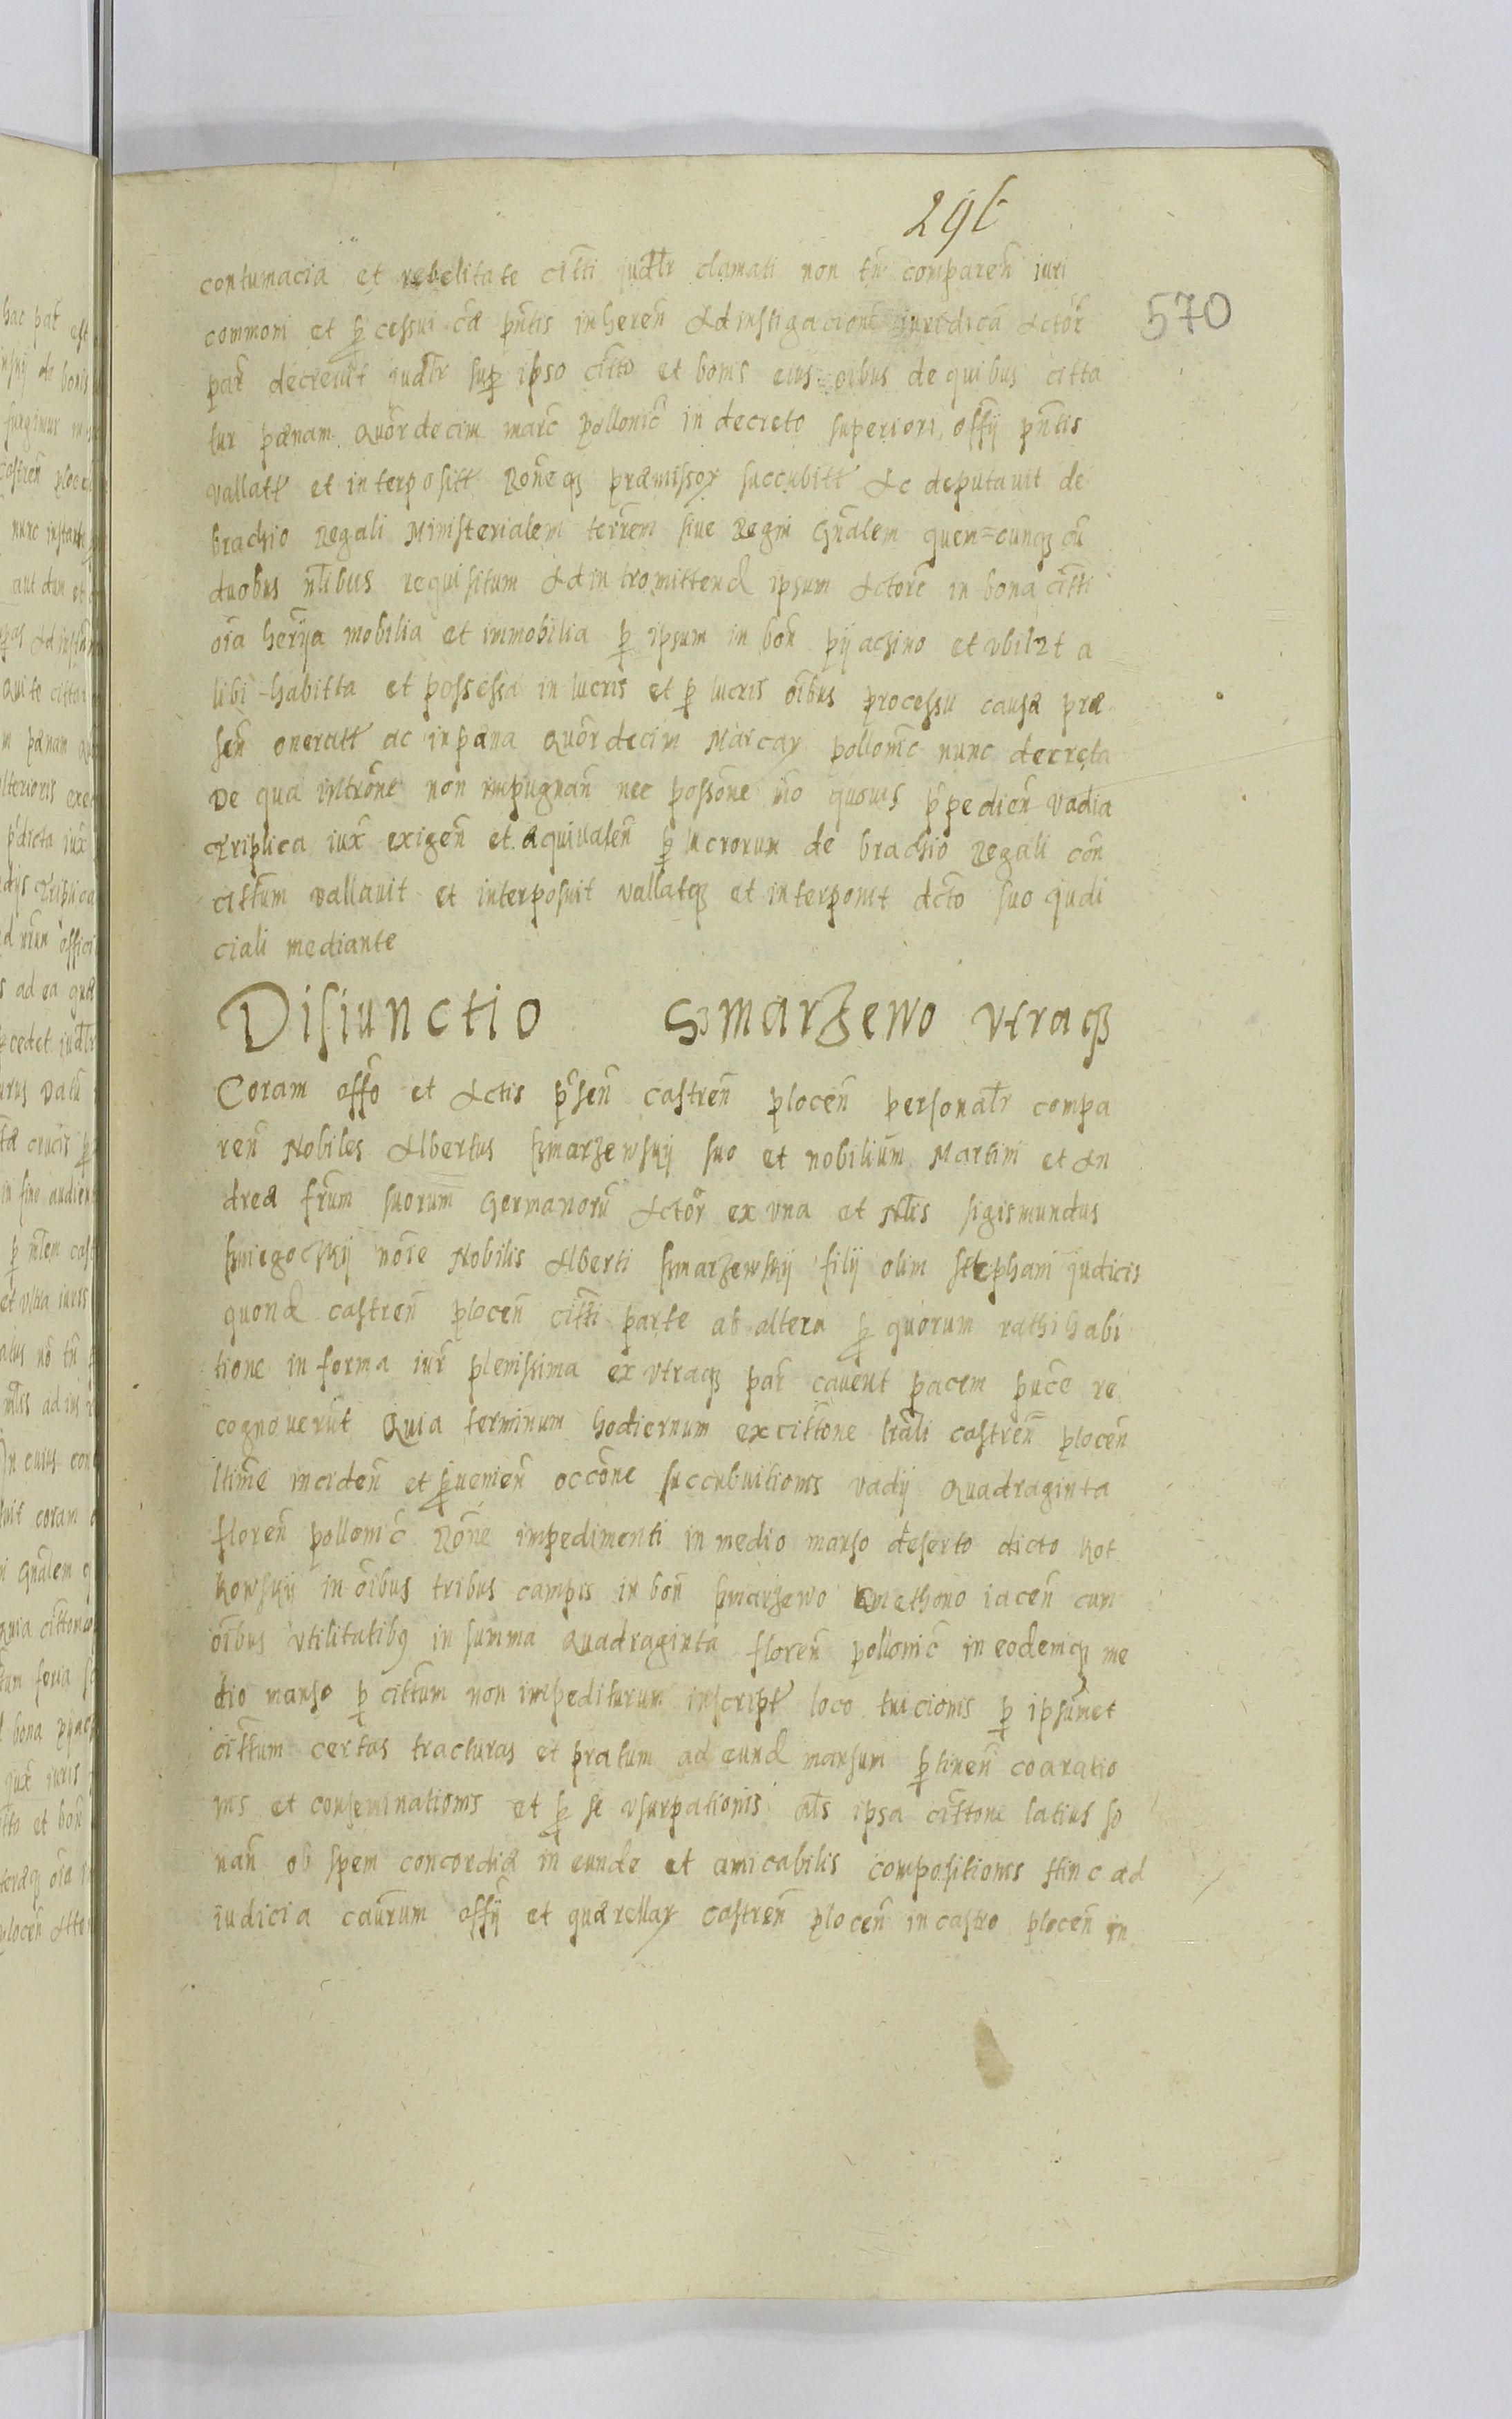 570
contumacia et rebelitate citti judltr clamati non tn̄ comparen̄ iuri
commoni et ꝓcessui cæ pn̄tis inheren̄ Ad instigacione juridica Actor̄
par̄ decreuit judltr suꝑ ipso citto et bonis eius oibus de quibus citta
tur pænam quordecim marc̄ pollonic̄ in decreto superiori, offij pn̄tis
vallatt et interpositt Roneqꝫ præmissoꝝ succubitt Ac deputauit de
brachio Regali Ministerialem terrem̄ siue Regni Gn̄alem quem=cunqꝫ cū
duobus nlibus requisitum Ad intromittend ipsum Actore in bona citti
oīa herīja mobilia et immobilia ꝑ ipsum in bon̄ pijachino et vbilzt a
libi habitta et possessa in lucris et ꝑ lucris oībus processu causæ præ
sen̄ oneratt ac in pæna quordecim Marcaꝝ pollonic nunc decreta
De qua intrōne non impugnan̄ nec possōne mō quouis ꝓpedien̄ vadia
triplica iux̄ exigen̄ et æquiualen̄ ꝑ lucrorum de brachio Regali con̄
cittum vallauit et interposuit vallatqꝫ et interponit dcto suo judi
ciali mediante
Disiunctio Smarzewo vtraqꝫ
Coram offo et Actis p̄sen̄ castren̄ plocen̄ personaltr compa
ren̄ Nobiles Albertus smarzewskij suo et nobilium Martini et An
dreæ frum̄ suorum Germanorū Actor̄ ex vna et Nlis sigismundus
smiegoczkij noīe Nobilis Alberti smarzewskij filij olim stephani judicis
quond castren̄ plocen̄ citti parte ab altera ꝓ quorum rathihabi
tione in forma iur̄ plenissima ex vtraqꝫ par̄ cauent pacem puc̄e re
cognouerūt Quia terminum hodiernum ex cittone lrāli castren̄ plocen̄
ltime inciden̄ et ꝓuenien̄ occōne succubuitionis vadij Quadraginta
floren̄ pollonic̄ Rōne impedimenti in medio manso deserto dicto kot
kowskij in oībus tribus campis in bon̄ smarzewo kmethono iacen̄ cum
oībus vtilitatibꝰ in summa Quadraginta floren̄ pollonic̄ in eodemqꝫ me
dio manso ꝑ cittum non impediturum inscript loco tuicionis ꝑ ipsūmet
cittum certas tracturas et pratum ad eund mansum ꝑtinen̄ coaratio
nis et conseminationis et ꝓ se vsurpationis alts ipsa cittone latius so
nan̄ ob spem concordiæ ineundæ et amicabilis compositionis hinc ad
iudicia caurum̄ offij et quærellaꝝ castren̄ plocen̄ in castro plocen̄ in